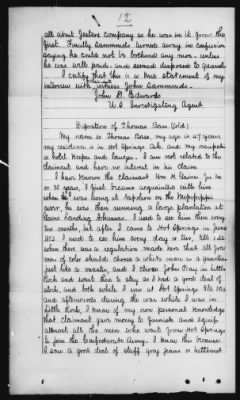 12
all about Jesters company so he was in it from the
first. Finally Cammunds turned away in confusion
saying he could not be bothered any more unless
he was well paid. and seemed disposed to quarrel.
I certify that this is a true statement of my
interview with witness John Cammunds.
John D. Edwards
U.S. Investigating Agent.
Deposition of Thomas Bass (Cold.)
My name is Thomas Bass, my age is 47 years
my residence is in Hot Springs Ark. and my occupation
a hotel keeper and lawyer. I am not related to the
claimant and have no interest in his claim.
I have known the claimant Wm H. Gaines Jr. 20
or 25 years, I first became acquainted with him
when he was living at Napoleon on the Mississippi
river, he was then running a large plantation at
Gaines landing Arkansas. I used to see him then every
two months, but after I came to Hot Springs in June
1852 I used to see him every day or two, till 1862
when there was a regulation made here that all free
men of color should choose a white man as a guardian
just like a master, and I chose John Kray in Little
Rock and went there to stay as I had a good deal of
stock, and both while I was at Hot Springs till 1862
and afterwards during the war while I was in
Little Rock, I know of my own personal knowledge
that claimant gave money to furnish and equip
almost all the men who went from Hot Springs
to join the Confederate Army. I know this because
I saw a good deal of stuff grey jeans or cottonet